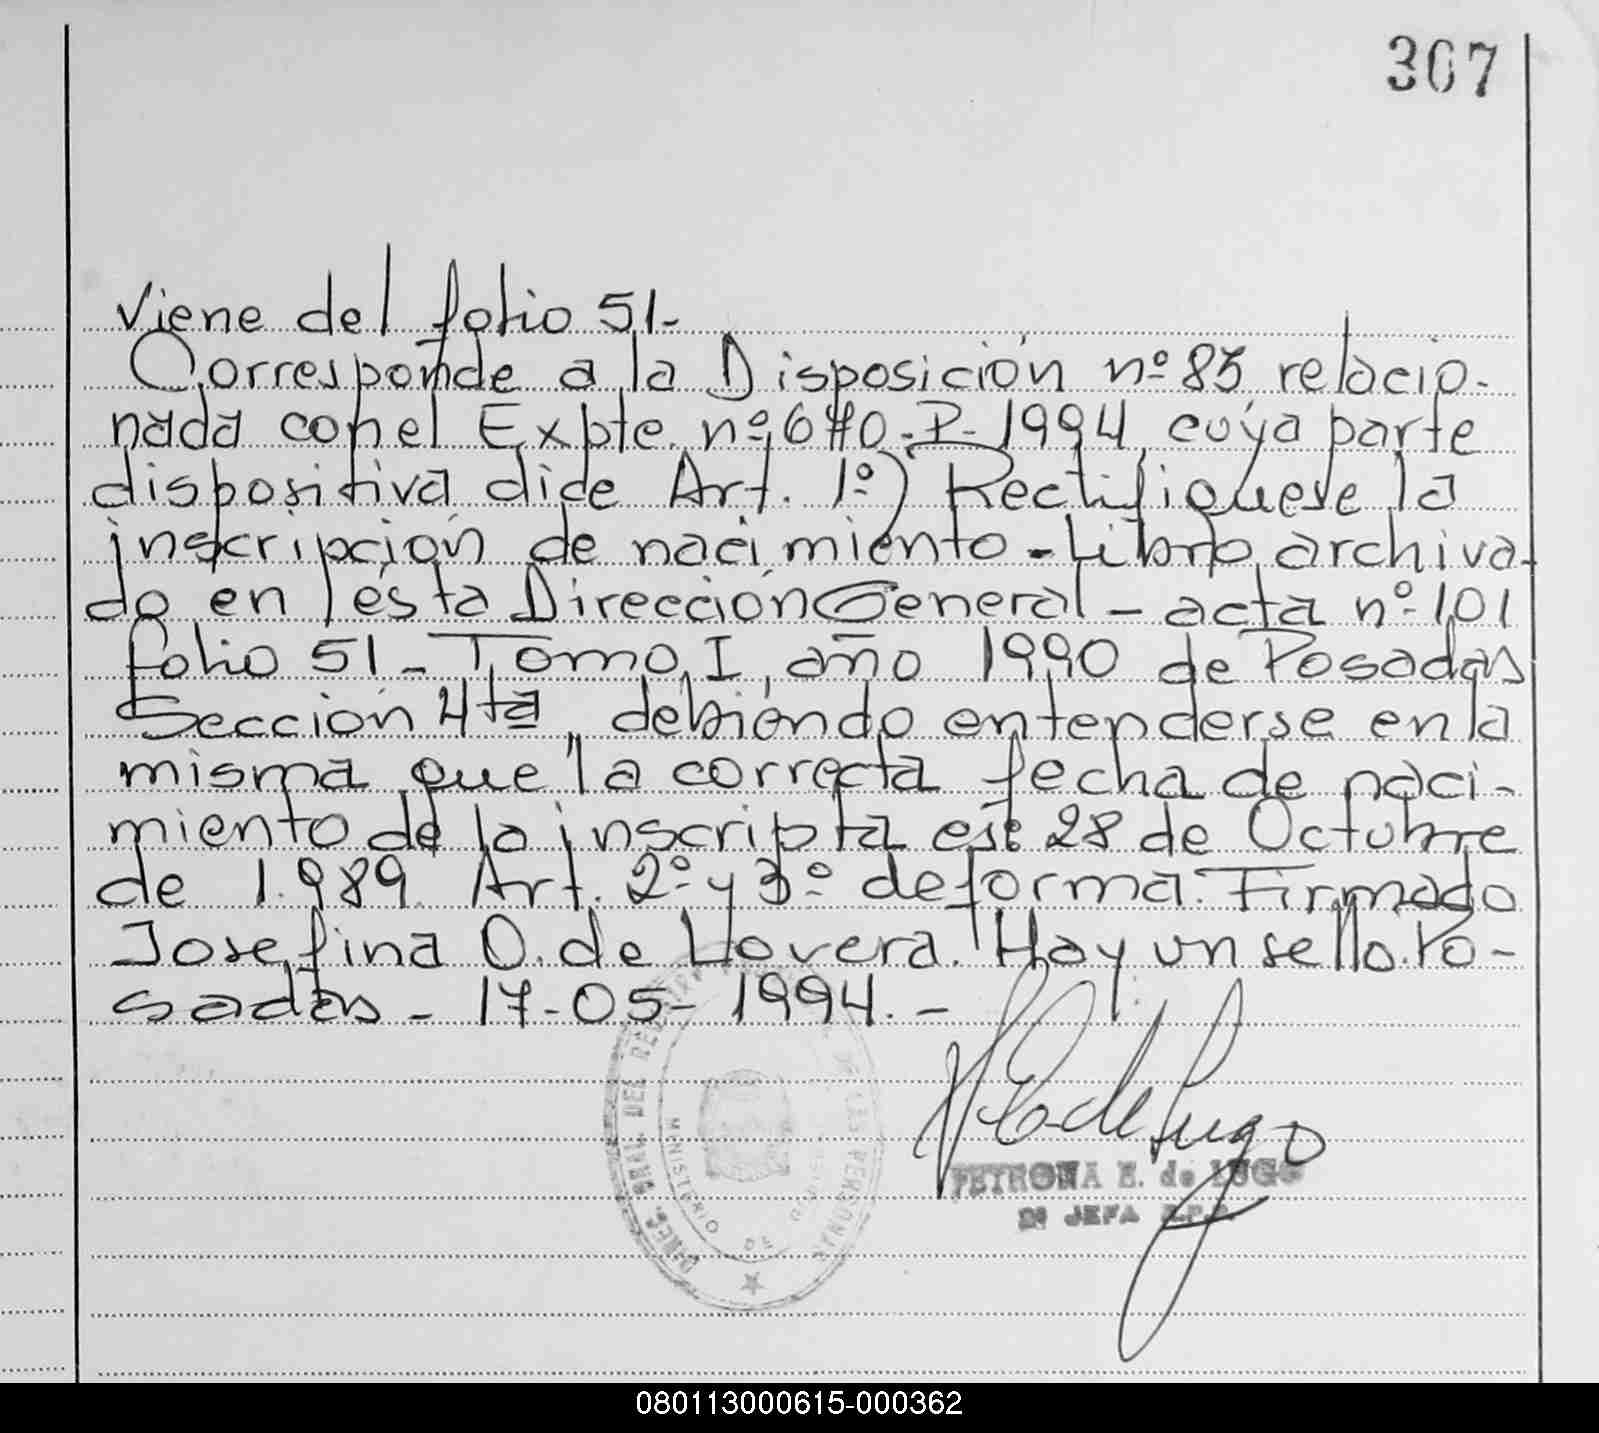 307
Viene del folio 51-
Corresponde a la Disposición nº 85 relacio-
nada con el Expte. nº 670-P-1994, cuya parte
dispositiva dice Art. 1º) Rectifiquese la
inscripción de nacimiento - Libro archiva-
do en ésta Dirección General - acta nº 101
folio 51 - Tomo I, año 1990 de Posadas
Sección 4ta, debiendo entenderse en la
misma que la correcta fecha de naci-
miento de la inscripta es: 28 de Octubre
de 1.989. Art. 2º y 3º de forma. Firmado
Josefina O. de Llovera. Hay un sello. Po-
sadas - 17-05-1994. -
PETRONA E. de LUGO
2º JEFA
DIREC. GRAL. DEL
MINISTERIO DE
080113000615-000362